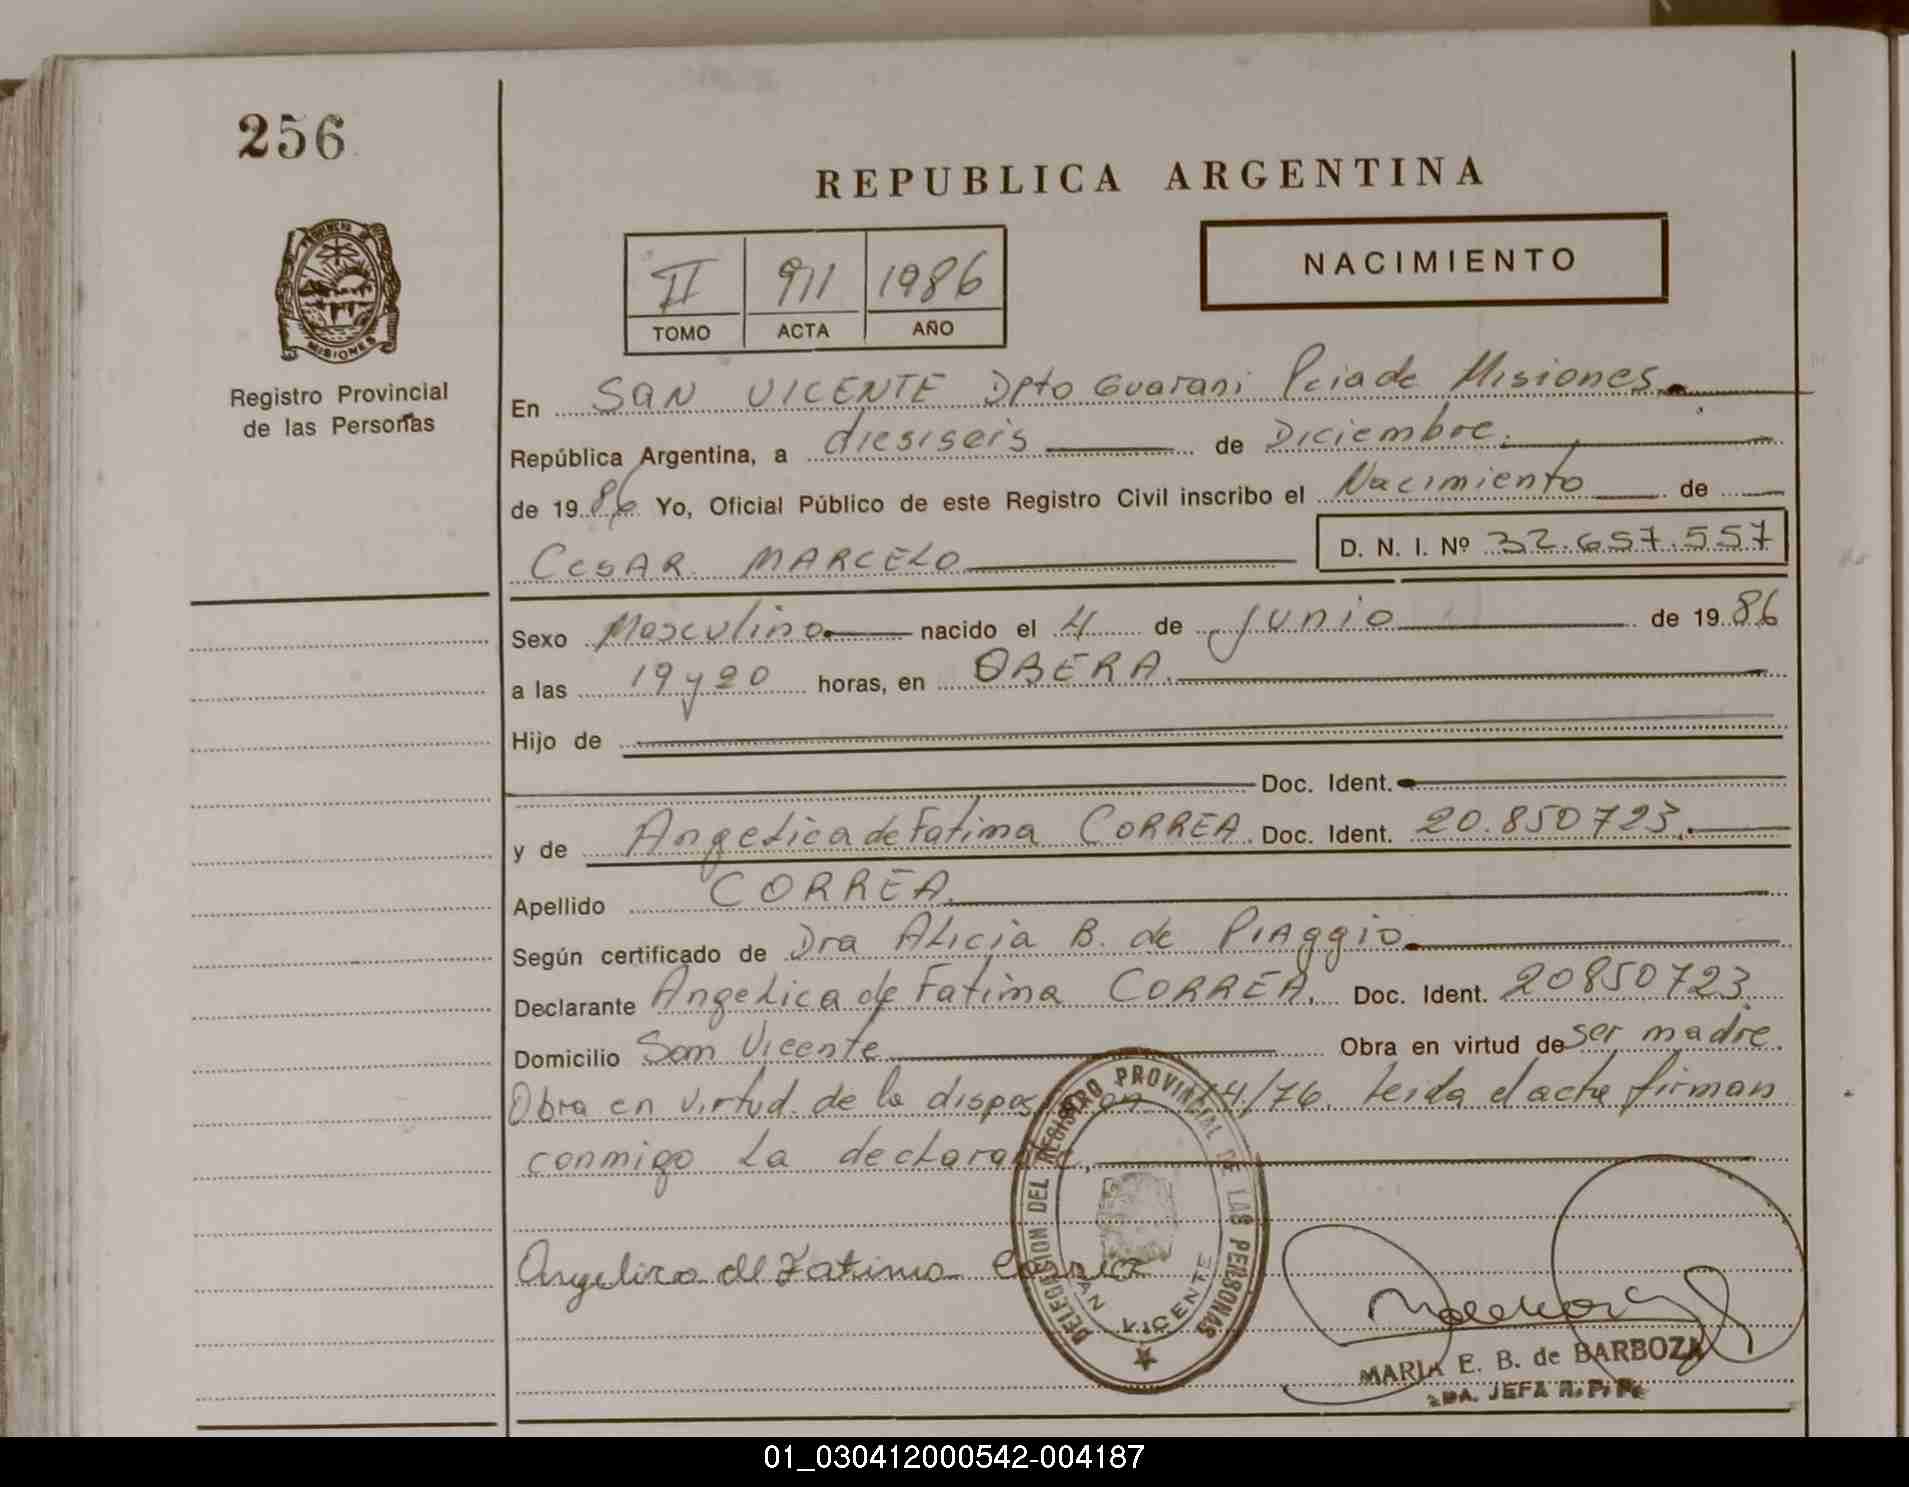 256
REPUBLICA ARGENTINA
PROVINCIA DE MISIONES
II 911 1986
TOMO ACTA AÑO
NACIMIENTO
Registro Provincial
de las Personas
En SAN VICENTE Dpto Guarani Pcia de Misiones
República Argentina, a diesiseis de Diciembre.
de 1986 Yo, Oficial Público de este Registro Civil inscribo el Nacimiento de
CesAR MARCELO D. N. I. Nº 32.657.557
Sexo Masculino nacido el 4 de Junio de 1986
a las 19 y 20 horas, en OBERA.
Hijo de
Doc. Ident.
y de Angelica de Fatima CORREA. Doc. Ident. 20.850723.
Apellido CORREA.
Según certificado de Dra Alicia B. de PIAggio
Declarante Angelica de Fatima CORREA. Doc. Ident. 20850723.
Domicilio San Vicente Obra en virtud de ser madre.
Obra en virtud de la disposicion 14/76. Leida el acta firman
conmigo la declarante,
Angelica de Fatima Correa
DELEGASION DEL REGISTRO PROVINCIAL DE LAS PERSONAS
SAN VICENTE
MARIA E. B. de BARBOZA
2DA. JEFA R. P. P.
01_030412000542-004187